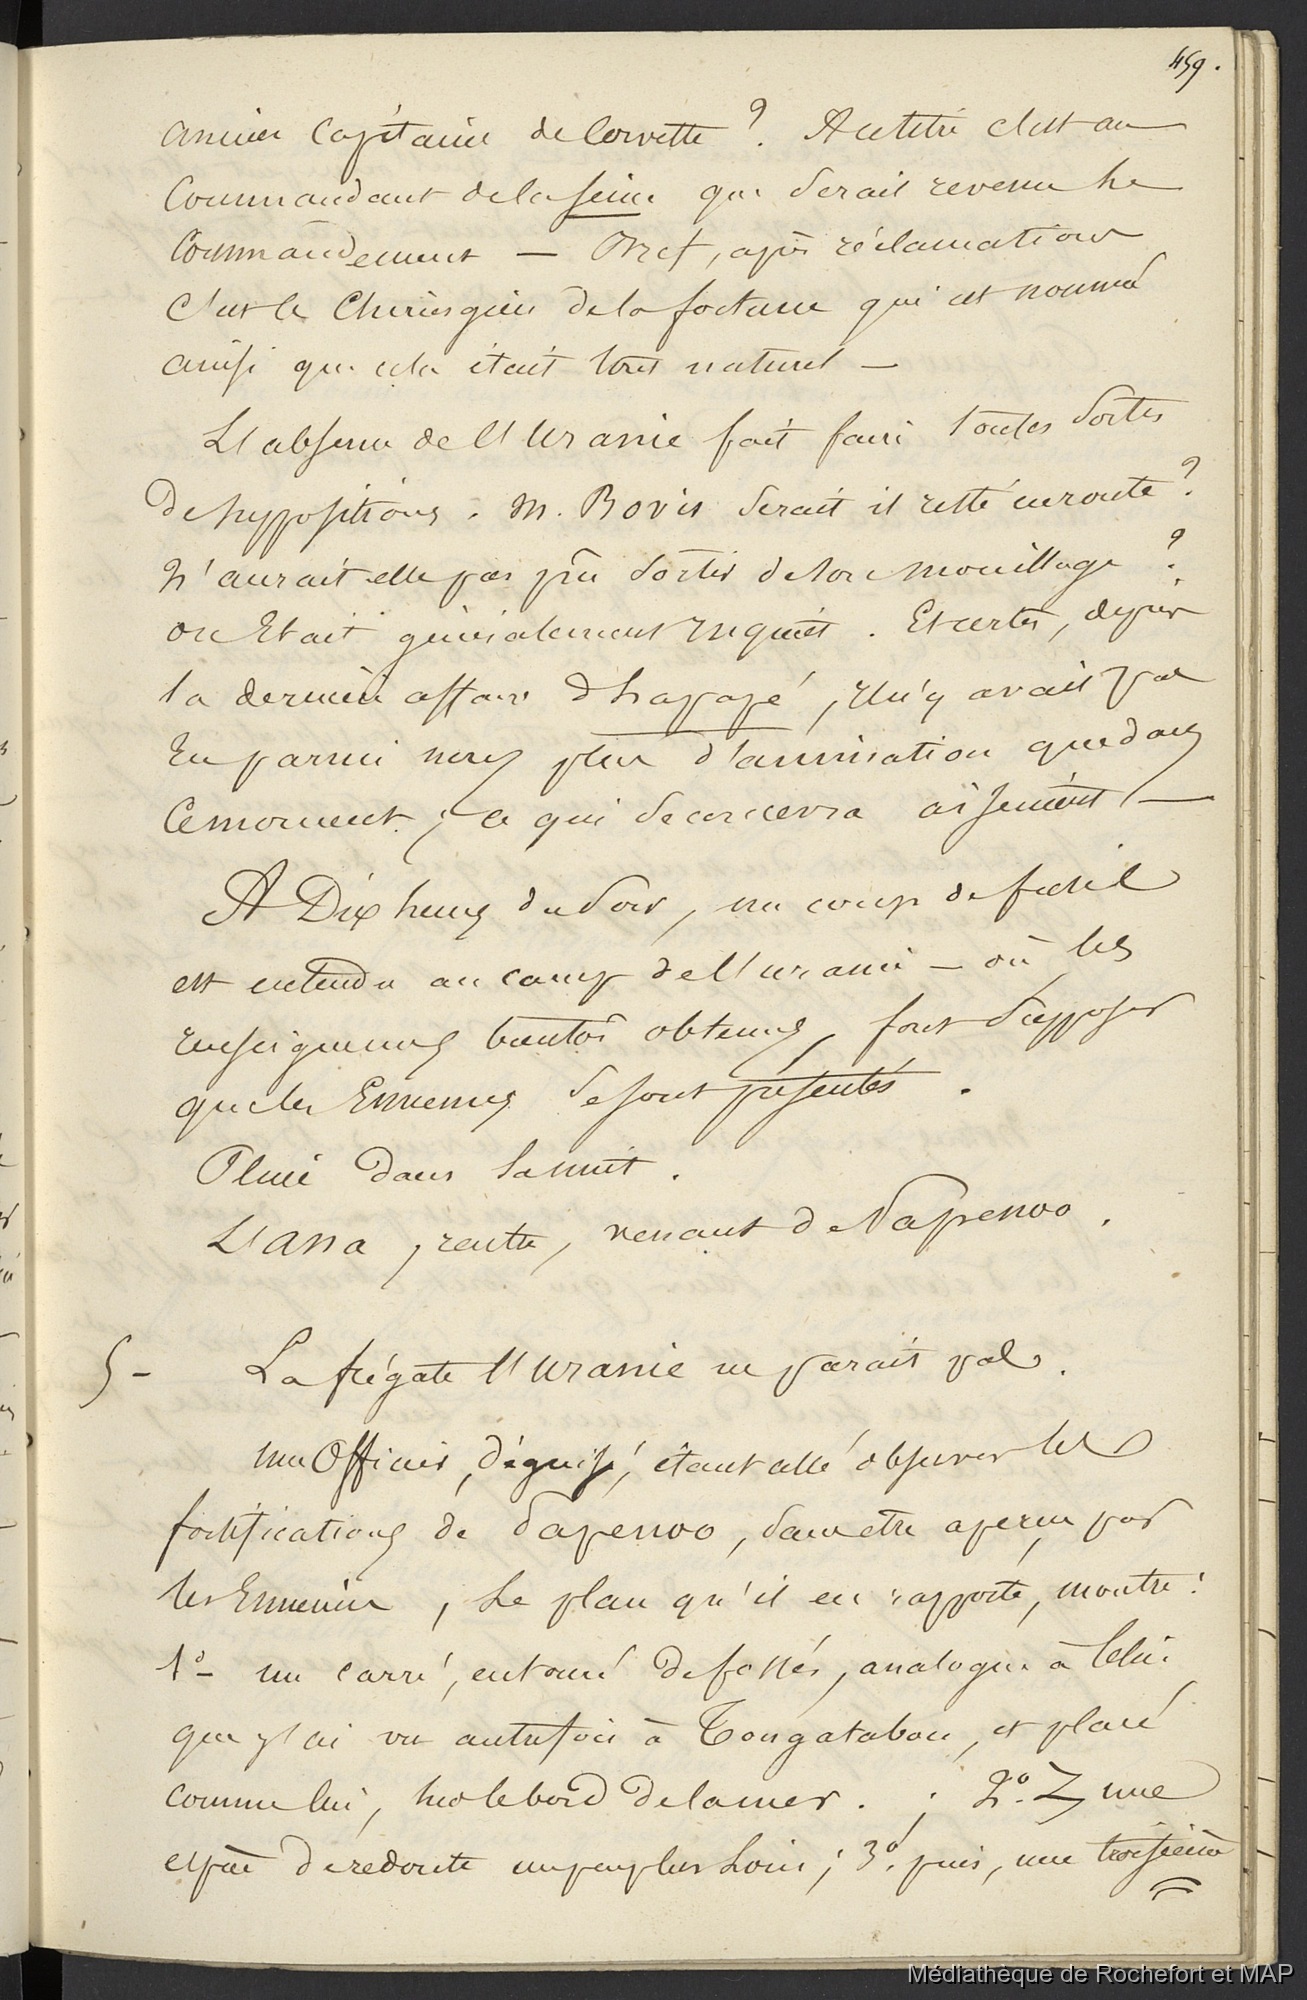 459.
ancien Capitaine de Corvette ? . A ce titre c'est au
Commandant de la Seine que serait revenu le
Commandement — Bref, après réclamations
c'est le Chirurgien de la fortune qui est nommé
ainsi que cela était tout naturel —
L'absence de l'Uranie fait faire toutes sortes
de suppositions . M. Bovis serait il resté en route ?
N'aurait elle pas pû sortir de son mouillage ?
on Etait généralement Inquiet . Et certes, depuis
la dernière affaire d'hapapé, il n'y avait pas
Eu parmi nous plus d'animation que dans
ce moment ; ce qui se concevra aisément —
A Dix heures du soir, un coup de fusil
est entendu au camp de l'uranie — où les
renseignemens bientôt obtenus, font supposer
que les Ennemis se sont présentés .
Pluie dans la nuit .
L'ana, rentre, venant de Papenoo .
5 - La frégate l'Uranie ne parait pas .
un Officier, déguisé, étant allé observer les
fortifications de Papenoo, sans etre aperçu par
les Ennemis, Le plan qu'il en rapporte, montre :
1° - un carré, entouré de fossés, analogue à celui
que j'ai vu autrefois à Tongatabou, et placé
comme lui, sur le bord de la mer . ; 2°. Z une
espèce de redoute un peu plus loin ; 3°. puis, une troisième
Médiathèque de Rochefort et MAP